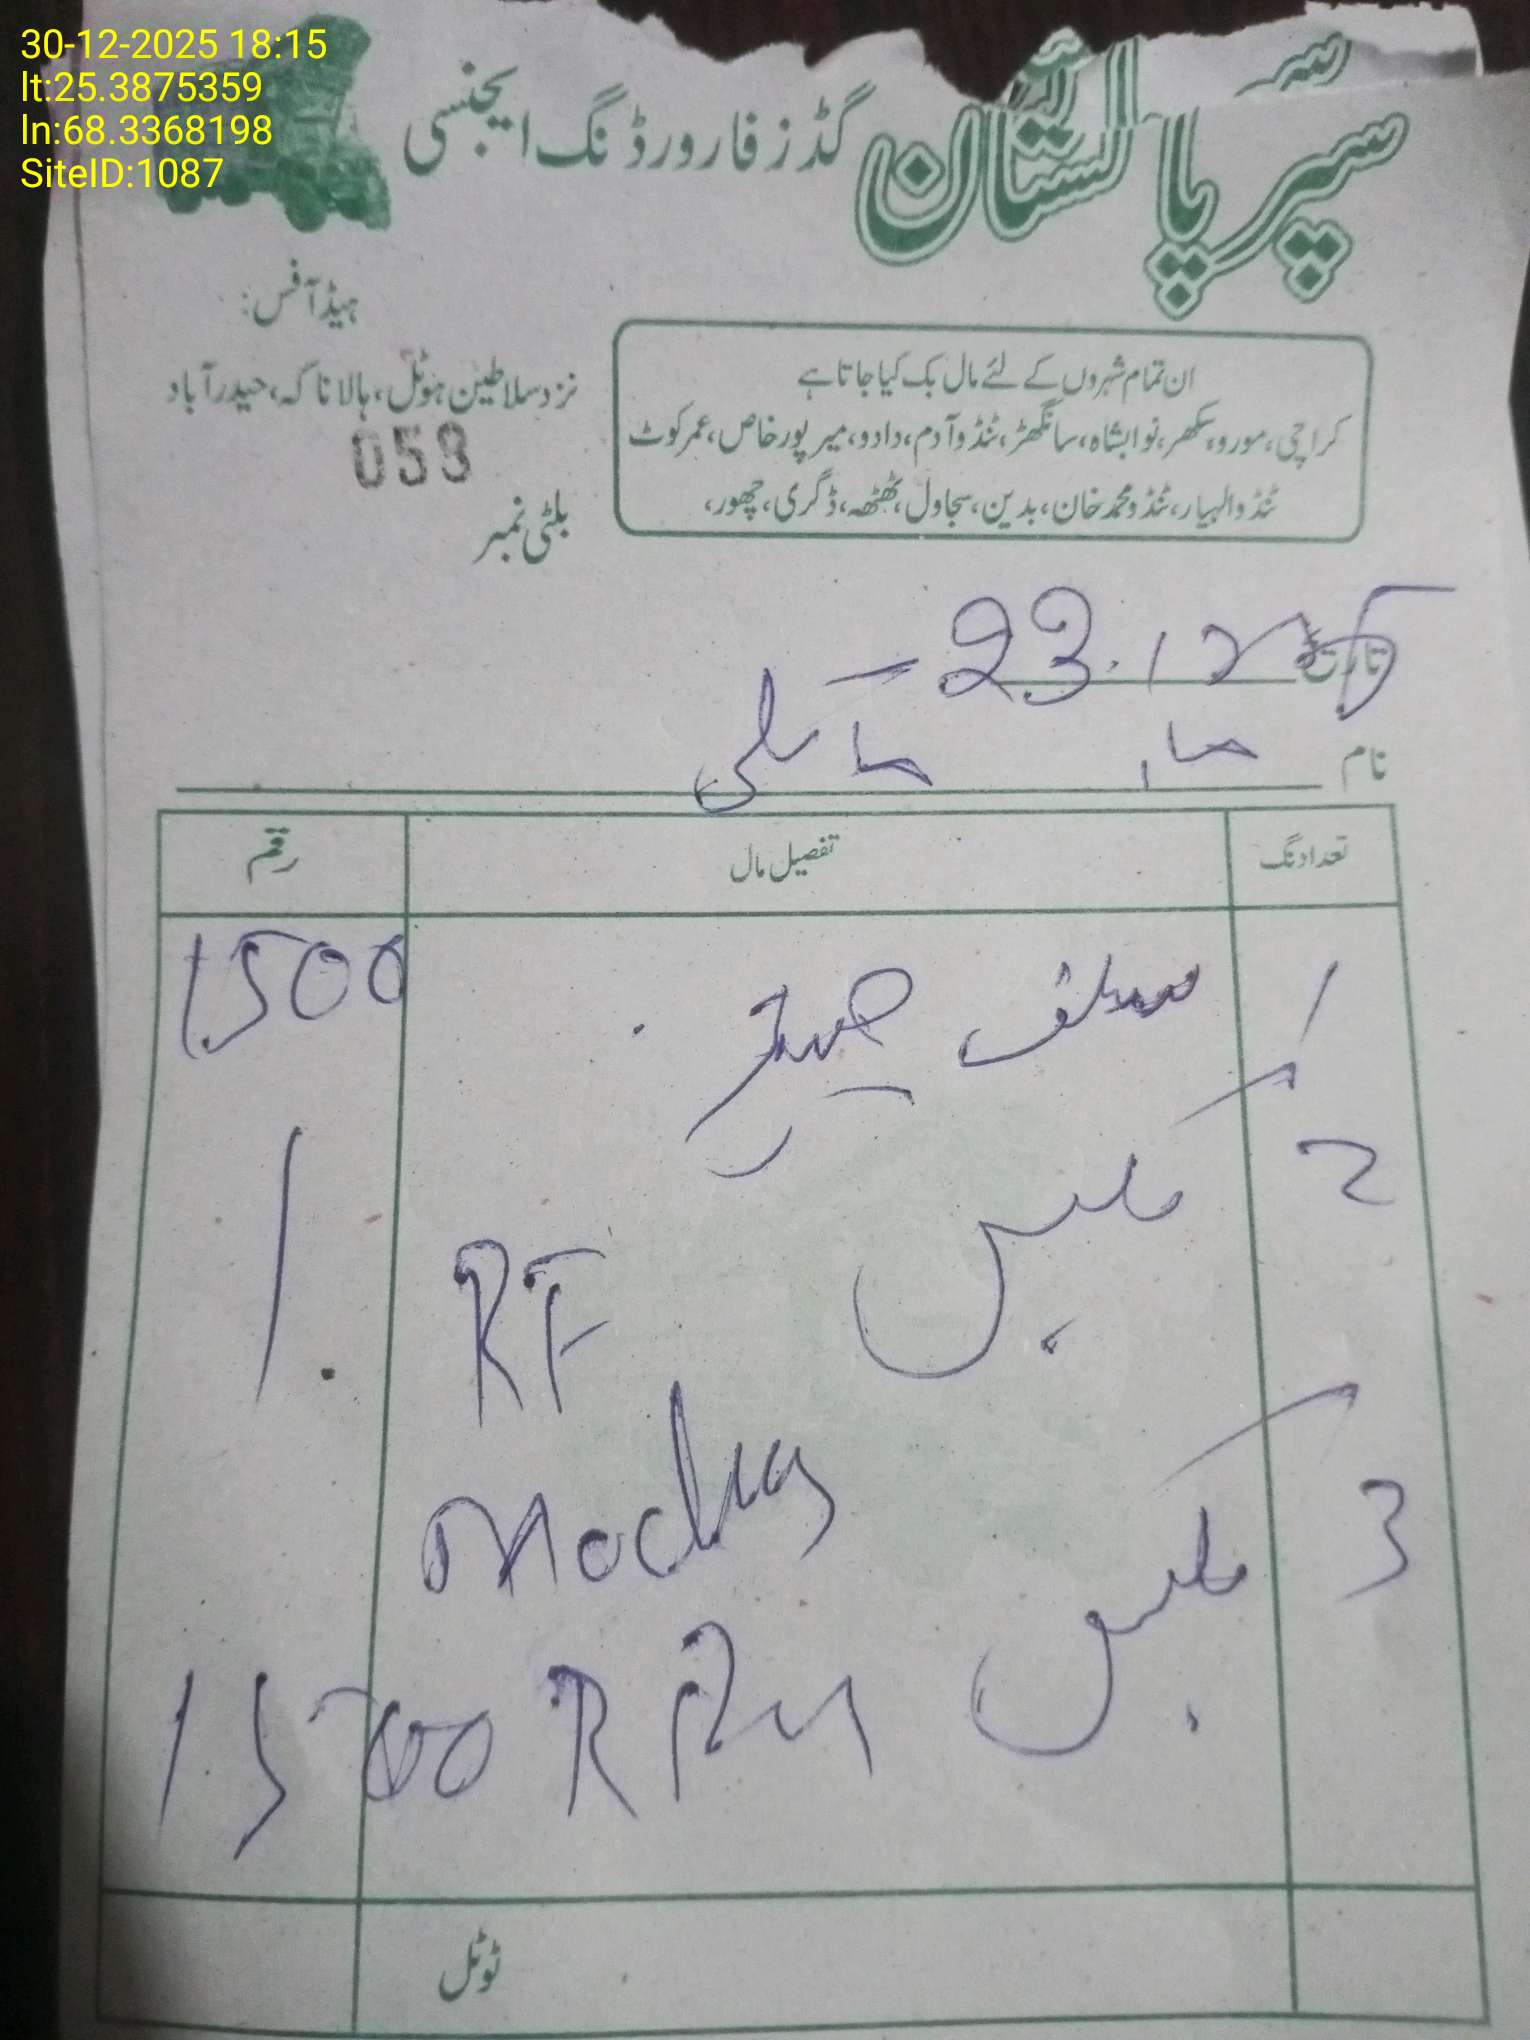 30-12-2025 18:15
lt:25.3875359
ln:68.3368198
SiteID:1087
سپر پاکستان گڈز فارورڈنگ ایجنسی
ہیڈ آفس:
نزد سلاطین ہوٹل، ہالا ناکہ، حیدرآباد
053
بلٹی نمبر
ان تمام شہروں کے لئے مال بک کیا جاتا ہے
کراچی، مورو، سکھر، نوابشاہ، سانگھڑ، ٹنڈوآدم، دادو، میرپورخاص، عمرکوٹ
ٹنڈوالہیار، ٹنڈومحمدخان، بدین، سجاول، ٹھٹھہ، ڈگری، چھور،
تاریخ 23.12
نام
تعداد نگ تفصیل مال رقم
1 سلف 1500
2 بکس
RF
3 بکس
1500
ٹوٹل